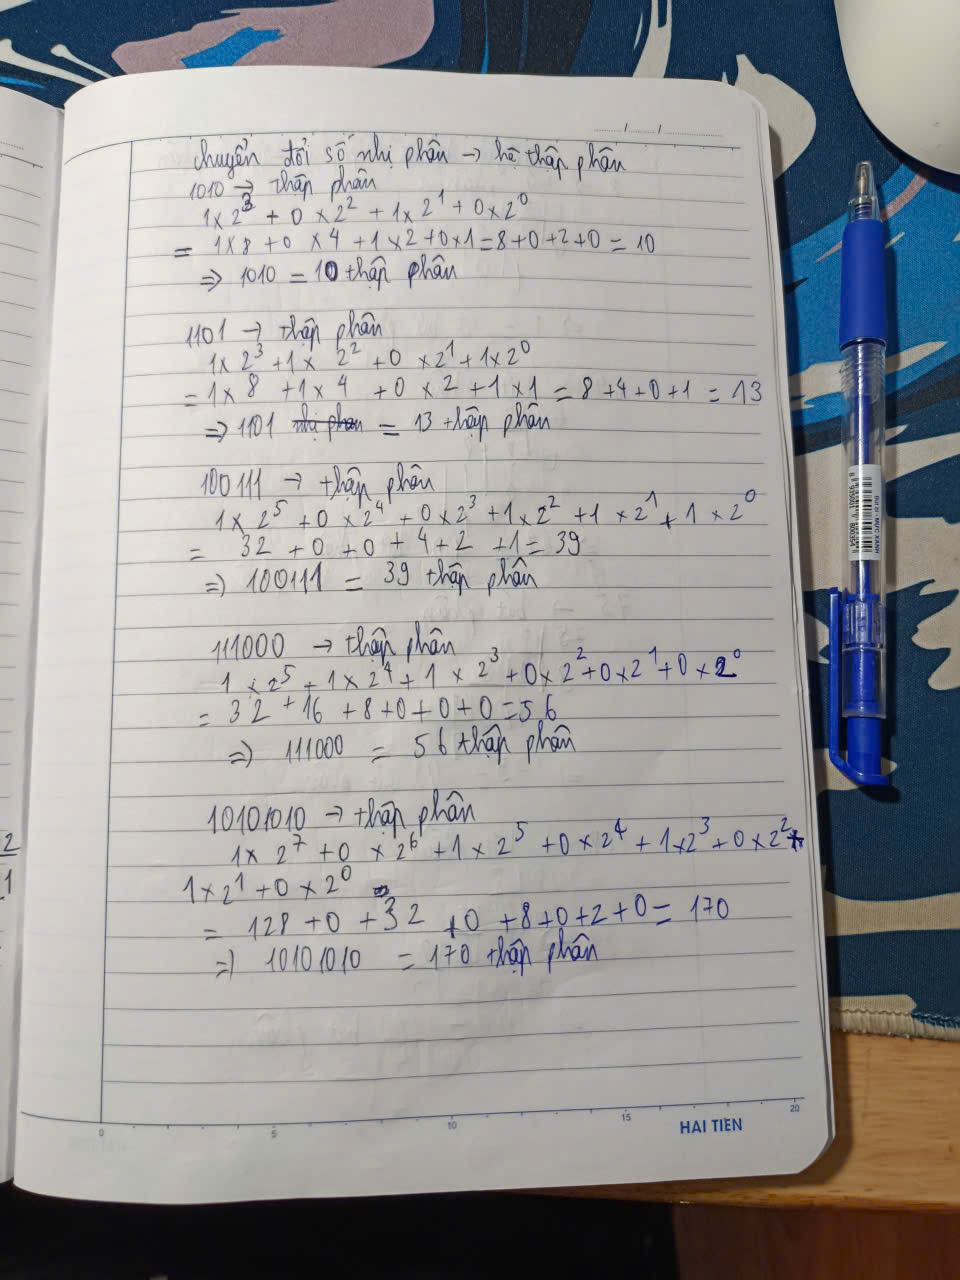 chuyển đổi số nhị phân → hệ thập phân
1010 → thập phân
1 x 2³ + 0 x 2² + 1 x 2¹ + 0 x 2⁰
= 1 x 8 + 0 x 4 + 1 x 2 + 0 x 1 = 8 + 0 + 2 + 0 = 10
⇒ 1010 = 10 thập phân
1101 → thập phân
1 x 2³ + 1 x 2² + 0 x 2¹ + 1 x 2⁰
= 1 x 8 + 1 x 4 + 0 x 2 + 1 x 1 = 8 + 4 + 0 + 1 = 13
⇒ 1101 nhị phân = 13 thập phân
100111 → thập phân
1 x 2⁵ + 0 x 2⁴ + 0 x 2³ + 1 x 2² + 1 x 2¹ + 1 x 2⁰
= 32 + 0 + 0 + 4 + 2 + 1 = 39
⇒ 100111 = 39 thập phân
111000 → thập phân
1 x 2⁵ + 1 x 2⁴ + 1 x 2³ + 0 x 2² + 0 x 2¹ + 0 x 2⁰
= 32 + 16 + 8 + 0 + 0 + 0 = 56
⇒ 111000 = 56 thập phân
10101010 → thập phân
1 x 2⁷ + 0 x 2⁶ + 1 x 2⁵ + 0 x 2⁴ + 1 x 2³ + 0 x 2² +
1 x 2¹ + 0 x 2⁰
= 128 + 0 + 32 + 0 + 8 + 0 + 2 + 0 = 170
⇒ 10101010 = 170 thập phân
0 5 10 15 20
HAI TIEN
2
1